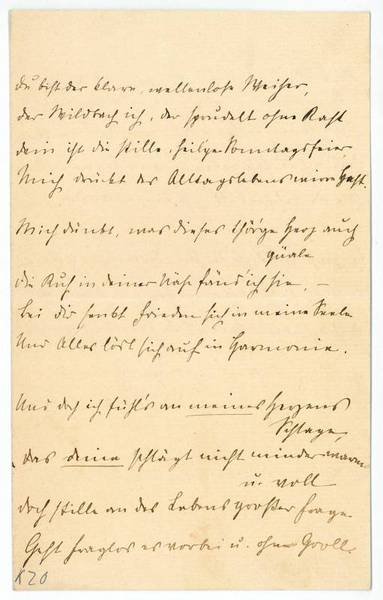 Du bist der klare, wellenlose Weiher,
der Wildbach ich, der sprudelt ohne Rast
dein ist die stille, heilge Sonntagsfeier,
Mich drückt des Alltagslebens wirre Hast.
Mich dünkt, was dieses thör'ge Herz auch
quäle
die Ruh in deiner Näh fänd' ich sie, –
bei dir senkt Frieden sich in meine Seele
Und Alles löst sich auf in Harmonie.
Und doch ich fühl's an meines Herzens
Schlage,
das deine schlägt nicht minder warm
u. voll
doch stille an des Lebens großer Frage
Geht fraglos es vorbei u. ohne Groll.
K20